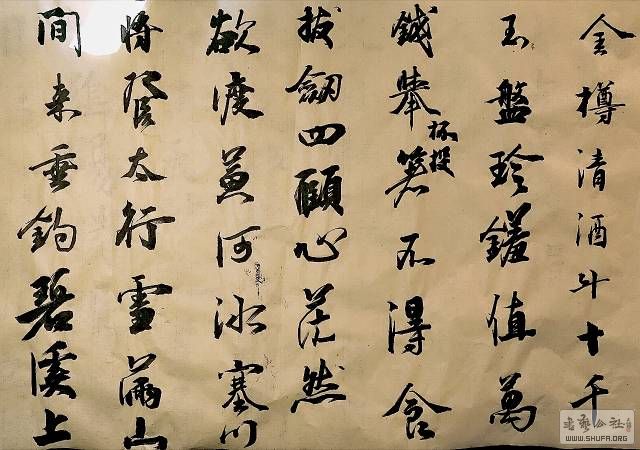 金樽清酒斗十千
玉盤珍饈值萬
錢舉杯投箸不得食
拔劍四顧心茫然
欲渡黃河冰塞川
將登太行雪滿山
間來垂釣碧溪上
書藝公社
WWW.SHUFA.ORG